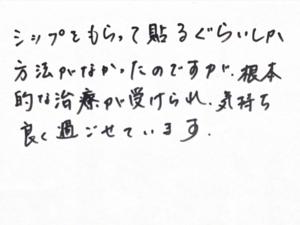 シップをもらって貼るぐらいしか
方法がなかったのですが、根本
的な治療が受けられ、気持ち
良く過ごせています.